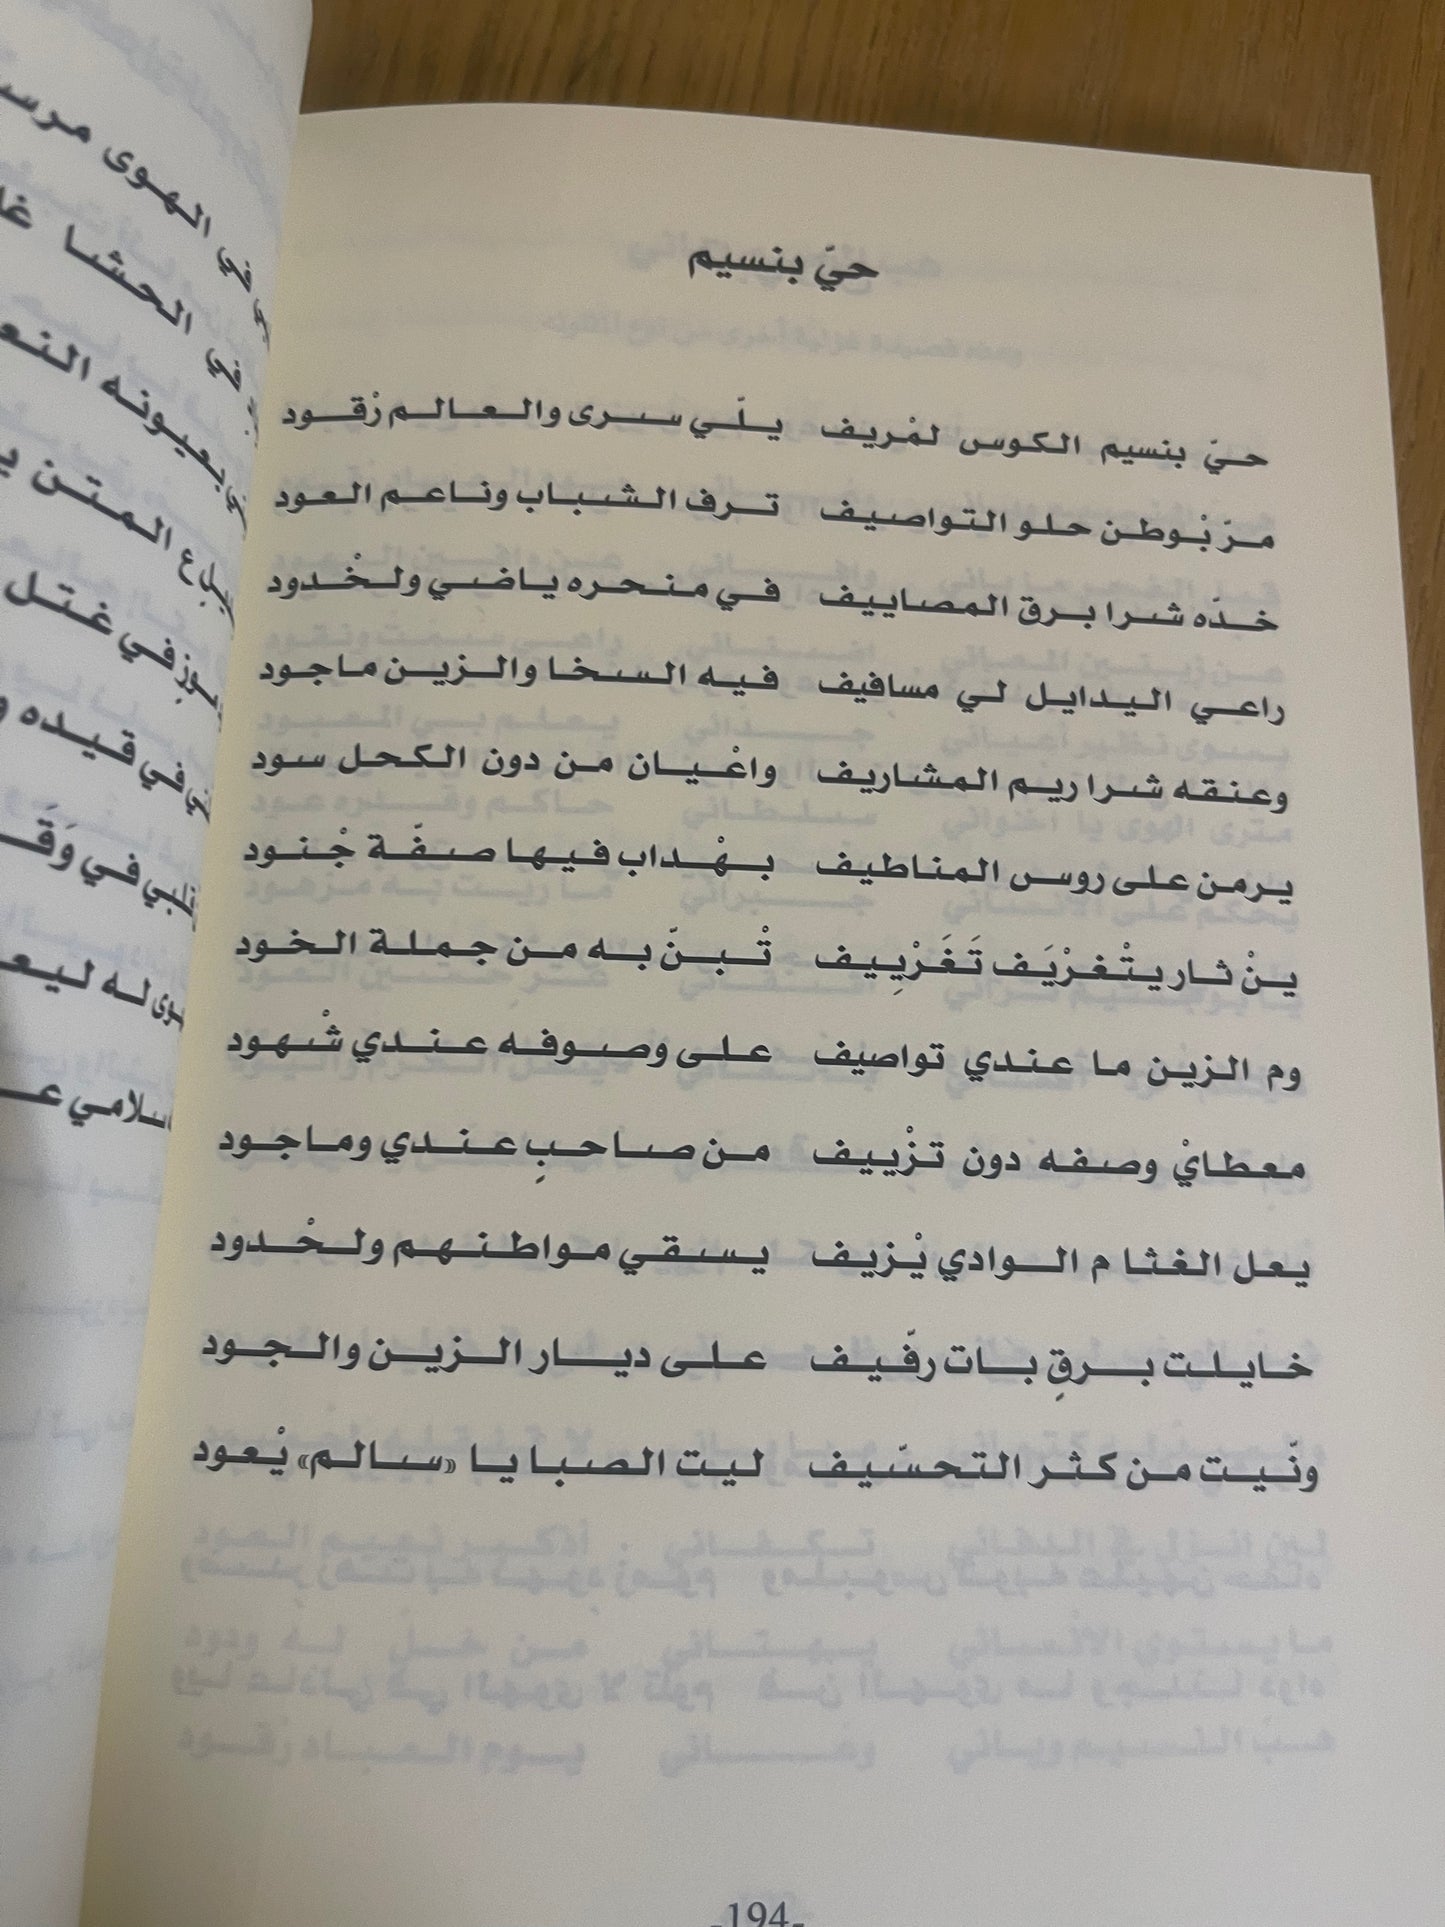 حيّ بنسيم
حيّ بنسيم الكوس لمْريف يلّي سرى والعالم رْقود
مرّ بْوطن حلو التواصيف ترف الشباب وناعم العود
خدّه شرا برق المصاييف في منحره ياضي ولخْدود
راعي اليدايل لي مسافيف فيه السخا والزين ماجود
وعنقه شرا ريم المشاريف واعْيان من دون الكحل سود
يرمن على روس المناطيف بهْداب فيها صفّة جْنود
ينْ ثار يتْغرْيَف تَغَرْيِيف تْبنّ به من جملة الخود
وم الزين ما عندي تواصيف على وصوفه عندي شْهود
معطايْ وصفه دون تزْييف من صاحبٍ عندي وماجود
يعل الغثا م الوادي يْزيف يسقي مواطنهم ولحْدود
خايلت برقٍ بات رفّيف على ديار الزين والجود
ونّيت من كثر التحسّيف ليت الصبا يا «سالم» يْعود
-194-
في الهوى
في الحشا
بعيونه
المتن
في غتل
في قيده
في وَقَـ
له ليعـ